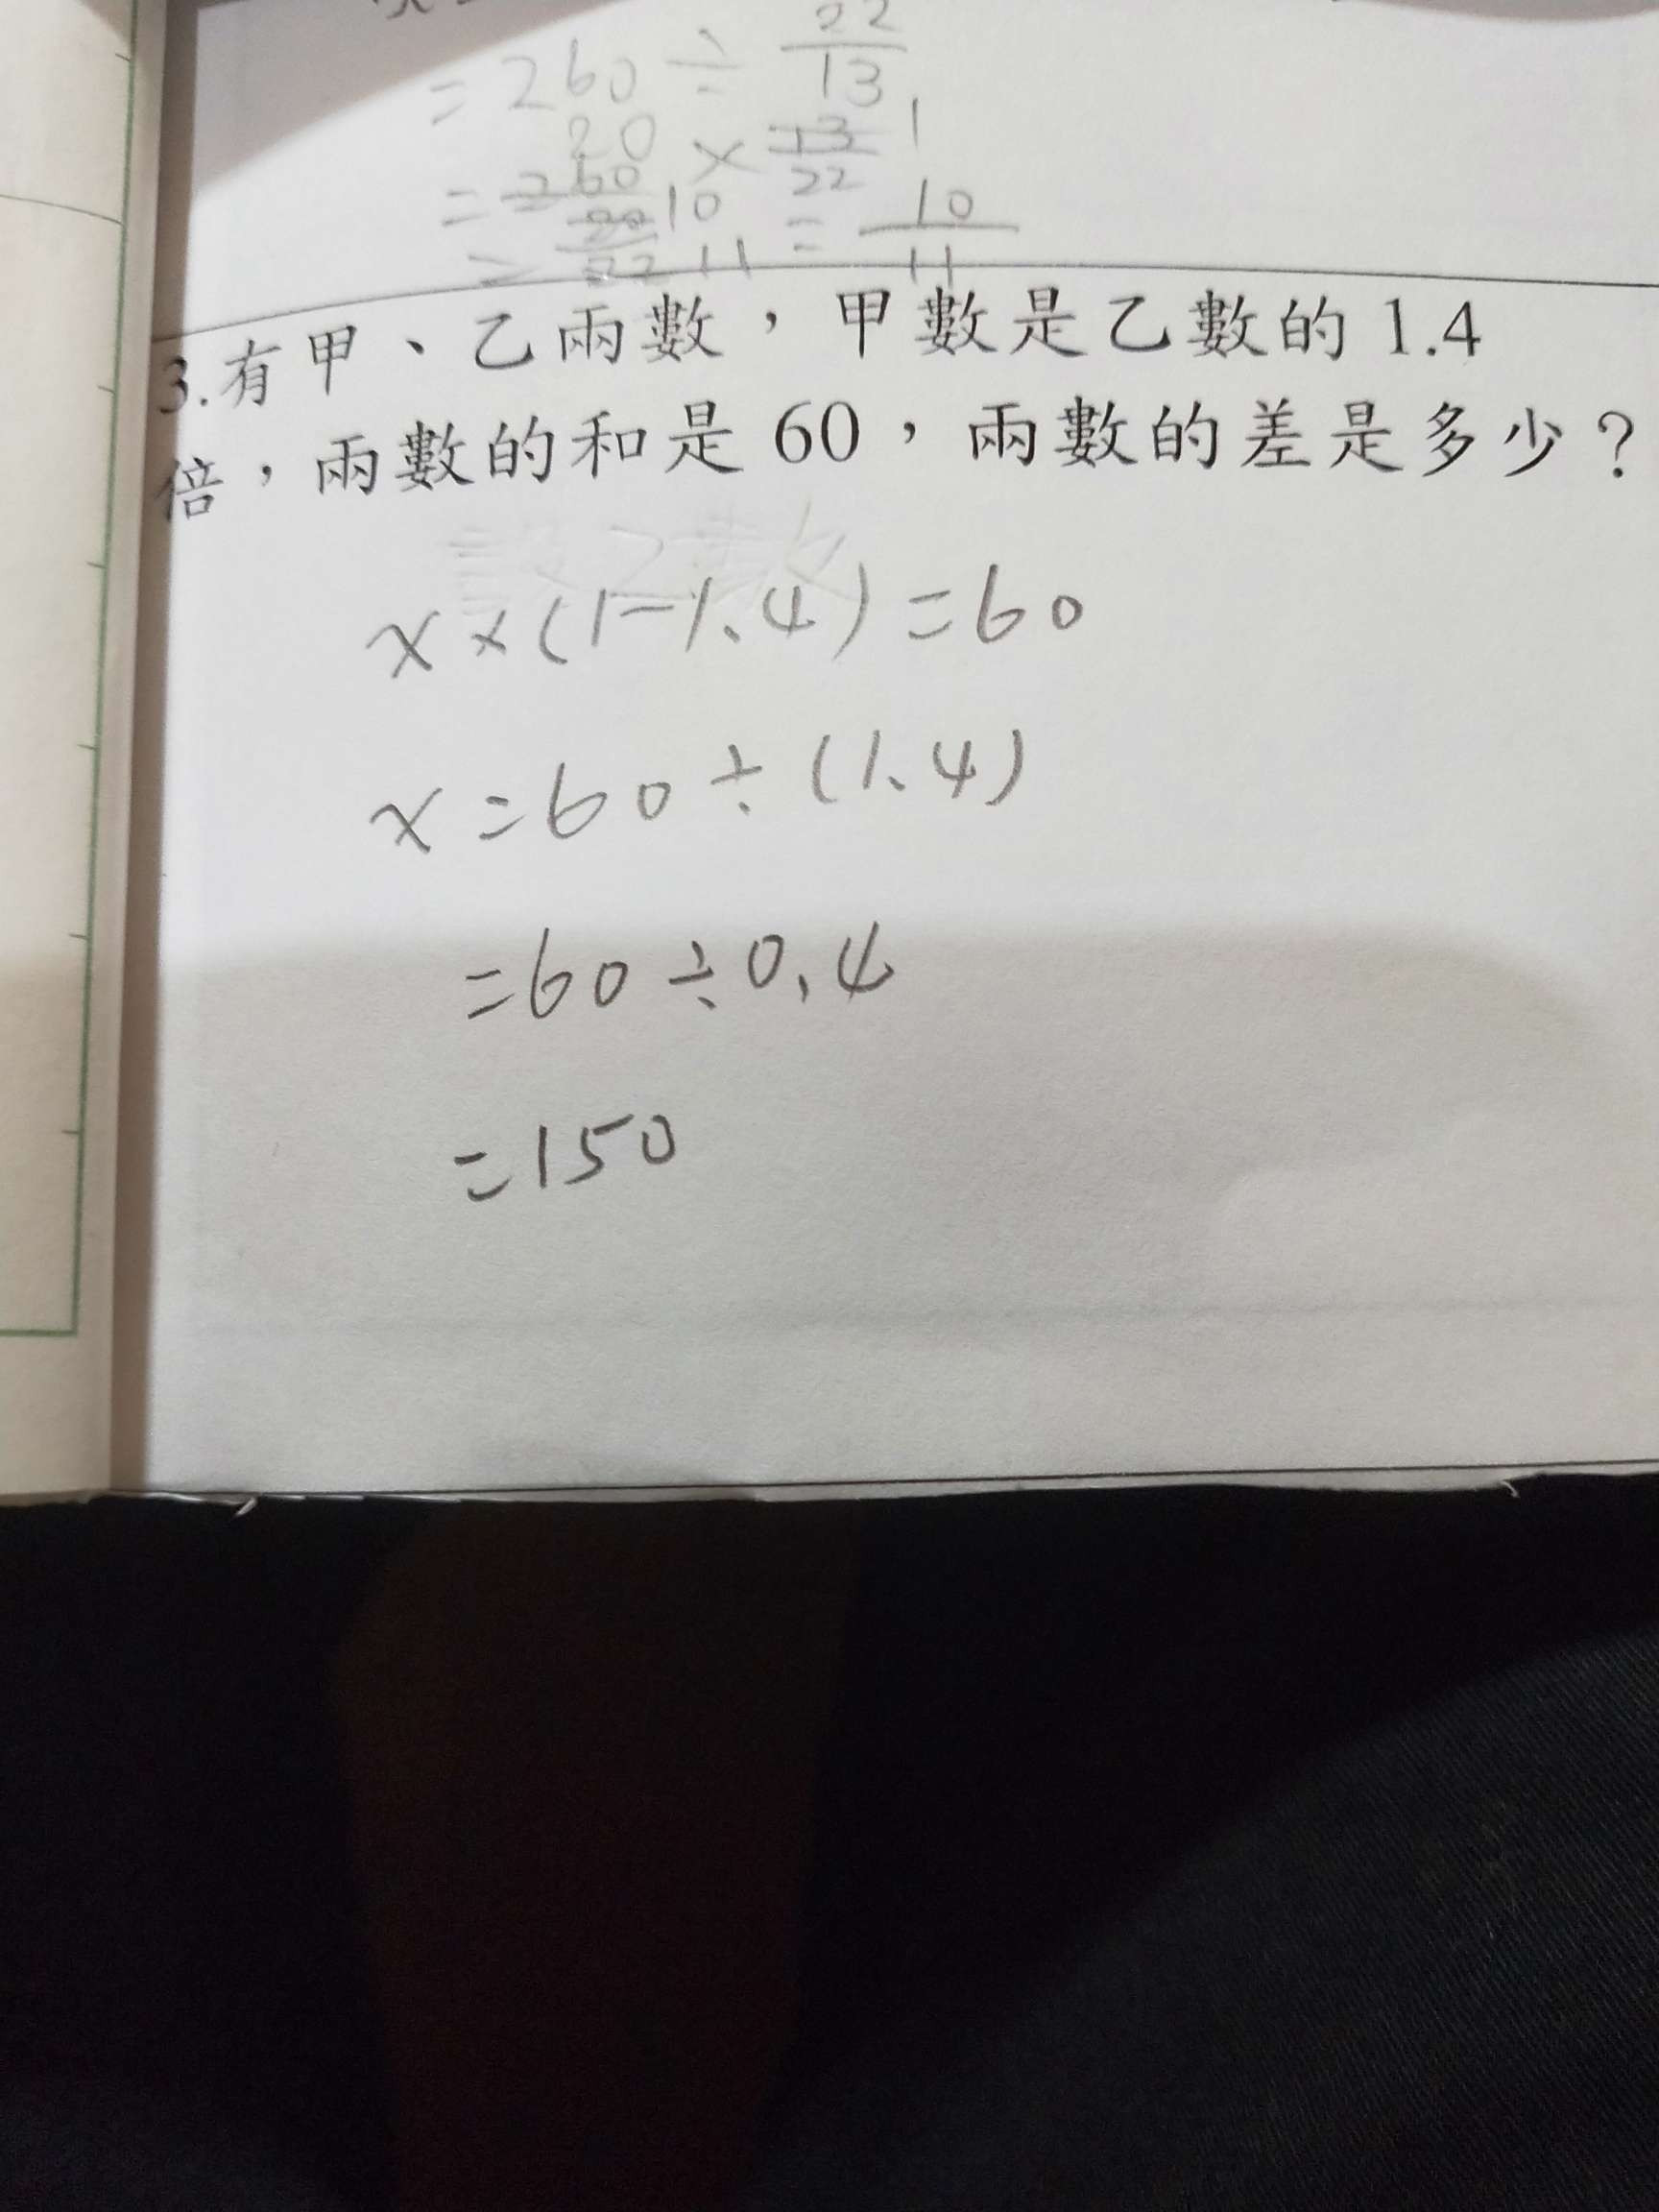 = 260 ÷ 22/13
20 1
= 260 × 13/22
= 20/22 10/11 = 10/11
3.有甲、乙兩數，甲數是乙數的1.4
倍，兩數的和是60，兩數的差是多少？
設乙數
x×(1-1.4)=60
x=60÷(1.4)
=60÷0.4
=150